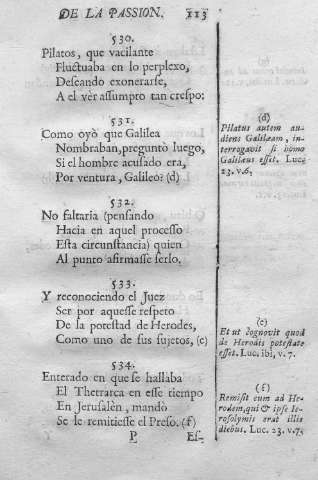 DE LA PASSION. 113
530.
Pilatos, que vacilante
Fluctuaba en lo perplexo,
Deseando exonerarse,
A el vèr assumpto tan crespo:
531.
Como oyò que Galilea
Nombraban, preguntò luego,
Si el hombre acusado era,
Por ventura, Galileo? (d)
532.
No faltaria (pensando
Hacia en aquel processo
Esta circunstancia) quien
Al punto afirmasse serlo.
533.
Y reconociendo el Juez
Ser por aquesse respeto
De la potestad de Herodes,
Como uno de sus sujetos, (e)
534.
Enterado en que se hallaba
El Thetrarca en esse tiempo
En Jerusalèn, mandò
Se le remitiesse el Preso. (f)
P Es-
(d)
Pilatus autem au-
diens Galilæam, in-
terrogavit si homo
Galilæus esset. Luc.
23. v.6,
(e)
Et ut cognovit quod
de Herodis potestate
esset. Luc. ibi, v. 7.
(f)
Remisit eum ad He-
rodem, qui & ipse Ie-
rosolymis erat illis
diebus. Luc. 23. v.7,